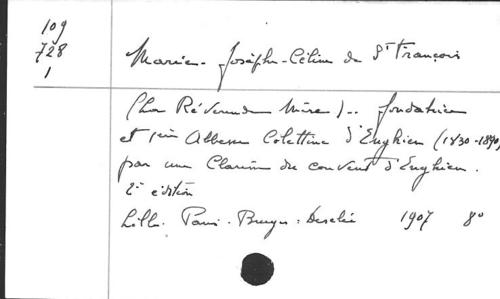 109
728
1
Marie-Joséphe-Céline de St François
(La Révérende Mère).. fondatrice
et 1ère Abbesse Colettine d'Enghien (1830-1890)
par une Clarisse du couvent d'Enghien.
2e édition
Lille. Paris. Bruges. Desclée 1907 8°